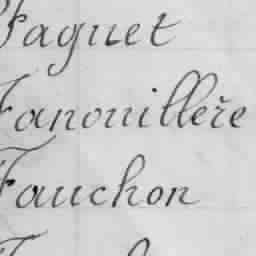 Faguet
Fanouillere
Fauchon